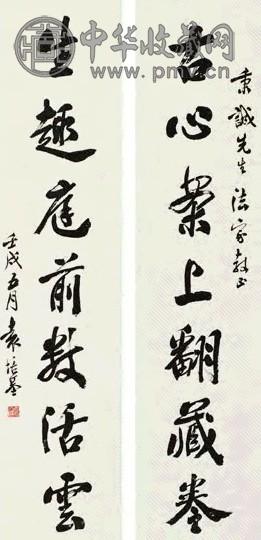 中华收藏网
www.pmv.cn
秉誠先生法家教正
心上翻藏卷
生趣庭前数活雲
壬戌五月袁培基